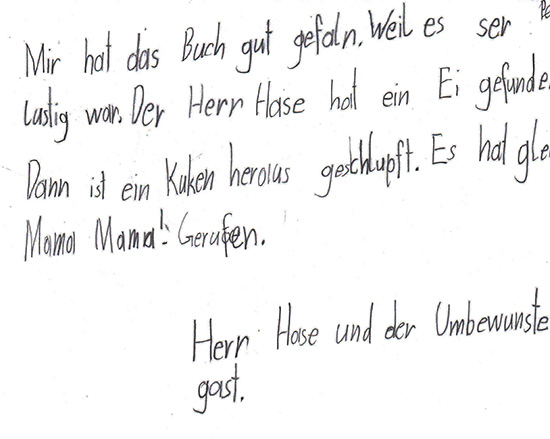 Mir hat das Buch gut gefaln. Weil es ser
Lustig war. Der Herr Hase hat ein Ei gefunde
Dann ist ein Kuken heraus geschlupft. Es hat gle
Mama Mama!" Gerufen.
Herr Hase und der Umbewunste
gast.